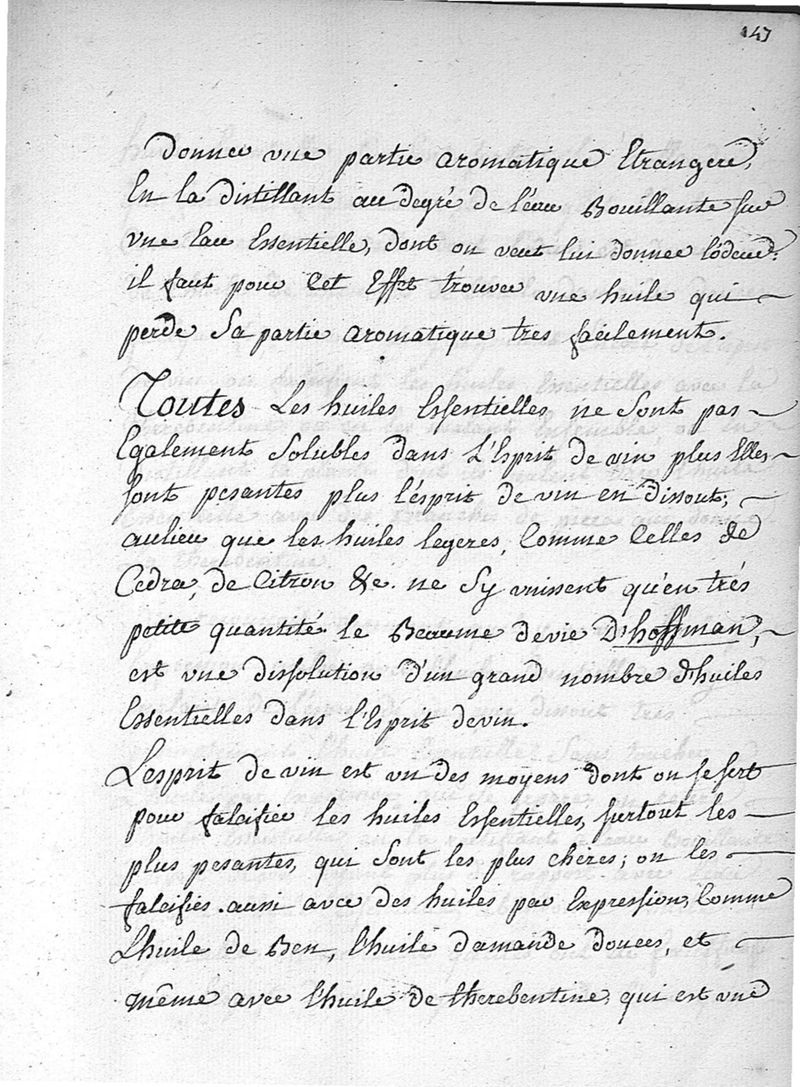 147
donner une partie aromatique Etrangere,
En la distillant au degré de l'eau Bouillante sur
vne Eau Essentielle, dont on veut lui donner l'odeur.
il faut pour Cet Effet trouver vne huile qui
perde Sa partie aromatique tres facilement.
Toutes Les huiles Essentielles ne Sont pas
Egalement Solubles dans L'Esprit de vin plus Elles
sont pesantes plus l'esprit de vin en dissout;
aulieu que les huiles legeres, Comme Celles de
Cedra, de Citron &c. ne Sy vnissent qu'en trés
petite quantité. le Beaume de vie D'hoffman,
est vne dissolution d'un grand nombre d'huiles
Essentielles dans l'Esprit de vin.
L'esprit de vin est vn des moyens dont on se sert
pour falcifier les huiles Essentielles, surtout les
plus pesantes, qui Sont les plus cheres; on les
falcifies aussi avec des huiles par Expression, Comme
L'huile de Ben, l'huile d'amande douces, et
même avec l'huile de therebentine, qui est vne